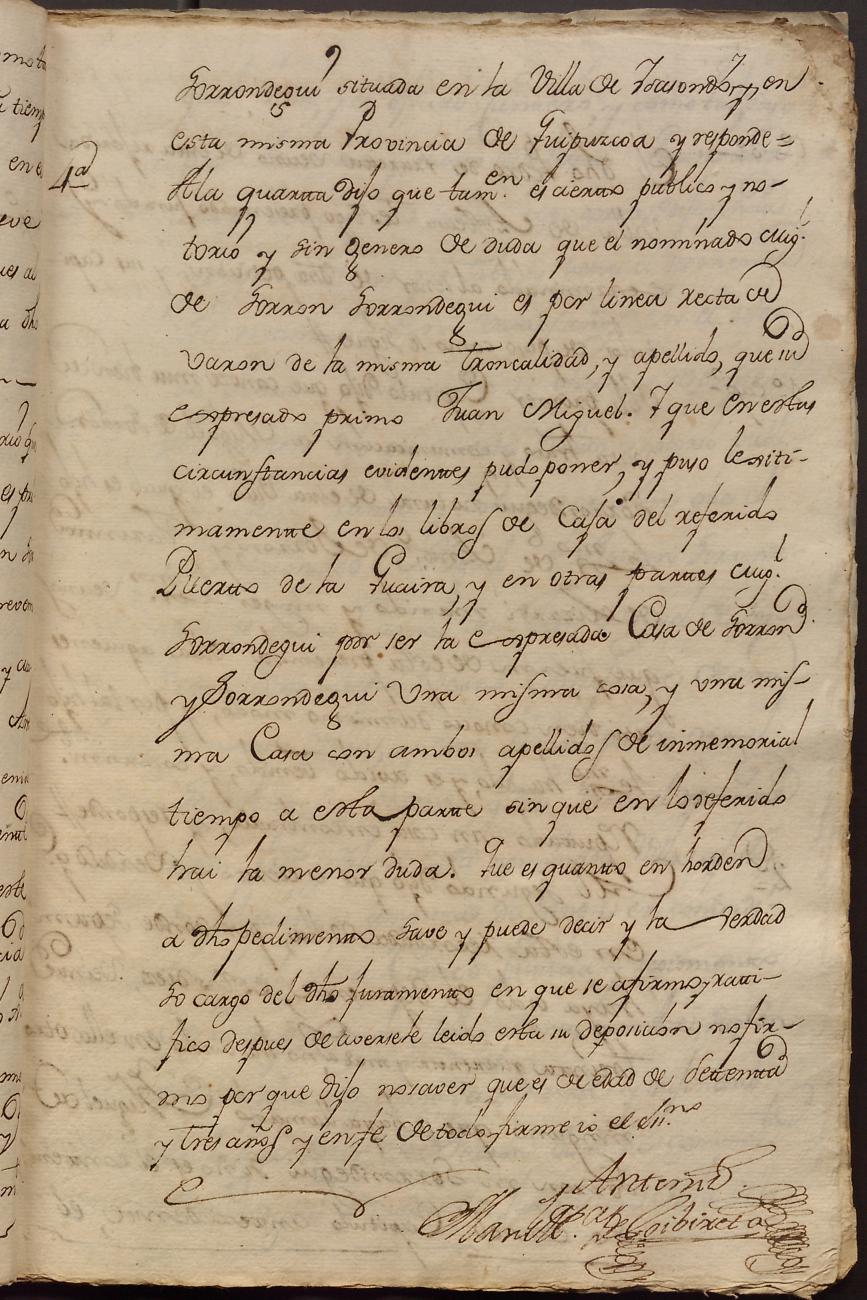 Sorrondegui situada en la Villa de Ysasondo, y en
esta misma Provincia de Guipuzcoa y responde=
4ª
A la quartta dijo que tamen. es ciertto publico y no-
torio y sin genero de duda que el nominado Migl.
de Sorron Sorrondegui es por linea recta de
varon de la misma troncalidad, y apellido, que su
expresado primo Juan Miguel. Y que en estas
circunstancias evidenttes pudo poner, y puso lexiti-
mamentte en los libros de Casa del referido
Puertto de la Guaira, y en otras parttes Migl.
Sorrondegui por ser la expresada Casa de Sorron
y Sorrondegui Una misma cosa, y una mis-
ma Casa con ambos apellidos de inmemorial
tiempo a esta partte sin que en lo referido
hai la menor duda. Que es quantto en horden
a dho pedimentto save y puede decir y la verdad
so cargo del dho juramentto en que se afirmo, ratti-
fico despues de aversele leido esta su deposicion no fir-
mo por que dijo no saver que es de edad de settentta
y tres años y en fe de todo firme io el essno
Antemi
Manuel